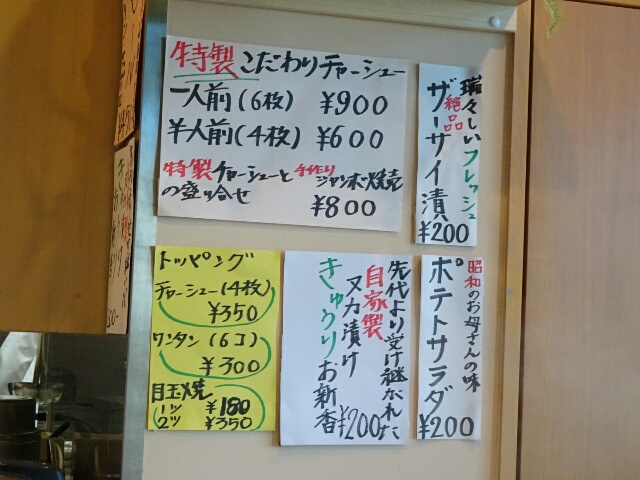 特製こだわりチャーシュー
一人前(6枚) ¥900
半人前(4枚) ¥600
特製チャーシューと手作りジャンボ焼売
の盛り合せ ¥800
瑞々しいフレッシュ
絶品
ザーサイ漬
¥200
トッピング
チャーシュー(4枚)
¥350
ワンタン(6コ)
¥300
目玉焼
1ツ ¥180
2ツ ¥350
先代より受け継がれた
自家製
ヌカ漬け
きゅうりお新香
¥200
昭和のお母さんの味
ポテトサラダ
¥200